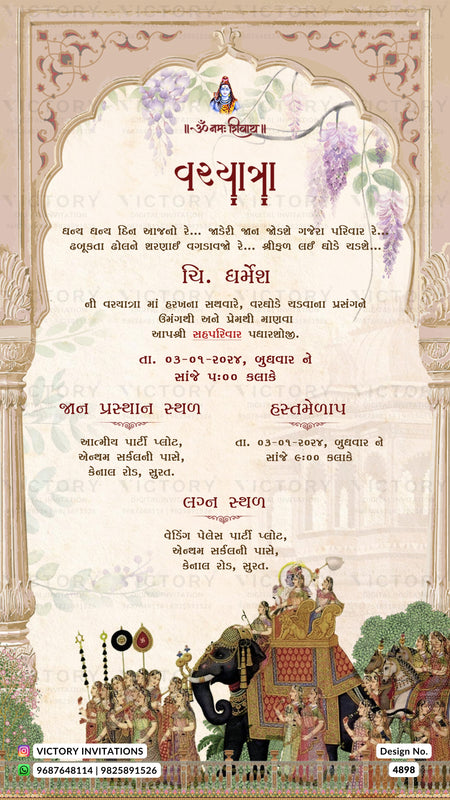 ॥ ૐ નમઃ શિવાય ॥
વરયાત્રા
ધન્ય ધન્ય દિન આજનો રે... જાડેરી જાન જોડશે ગજેરા પરિવાર રે...
ઢબૂકતા ઢોલને શરણાઈ વગડાવજો રે... શ્રીફળ લઈ ઘોડે ચડશે...
ચિ. ધર્મેશ
ની વરયાત્રા માં હરખના સથવારે, વરઘોડે ચડવાના પ્રસંગને
ઉમંગથી અને પ્રેમથી માણવા
આપશ્રી સહપરિવાર પધારશોજી.
તા. ૦૩-૦૧-૨૦૨૪, બુધવાર ને
સાંજે ૫:૦૦ કલાકે
જાન પ્રસ્થાન સ્થળ
આત્મીય પાર્ટી પ્લોટ,
એન્થમ સર્કલની પાસે,
કેનાલ રોડ, સુરત.
હસ્તમેળાપ
તા. ૦૩-૦૧-૨૦૨૪, બુધવાર ને
સાંજે ૯:૦૦ કલાકે
લગ્ન સ્થળ
વેડિંગ પેલેસ પાર્ટી પ્લોટ,
એન્થમ સર્કલની પાસે,
કેનાલ રોડ, સુરત.
VICTORY INVITATIONS
9687648114 | 9825891526
Design No.
4898